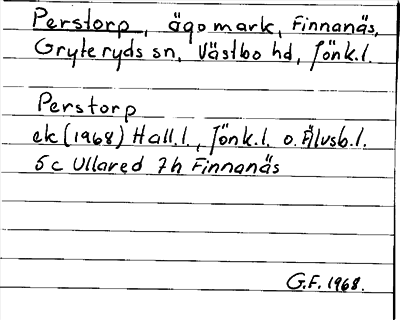 Perstorp, ägomark, Finnanäs,
Gryteryds sn, Västbo hd, Jönk.l.
Perstorp
ek (1968) Hall.l., Jönk.l. o. Älvsb.l.
5c Ullared 7h Finnanäs
G.F. 1968.